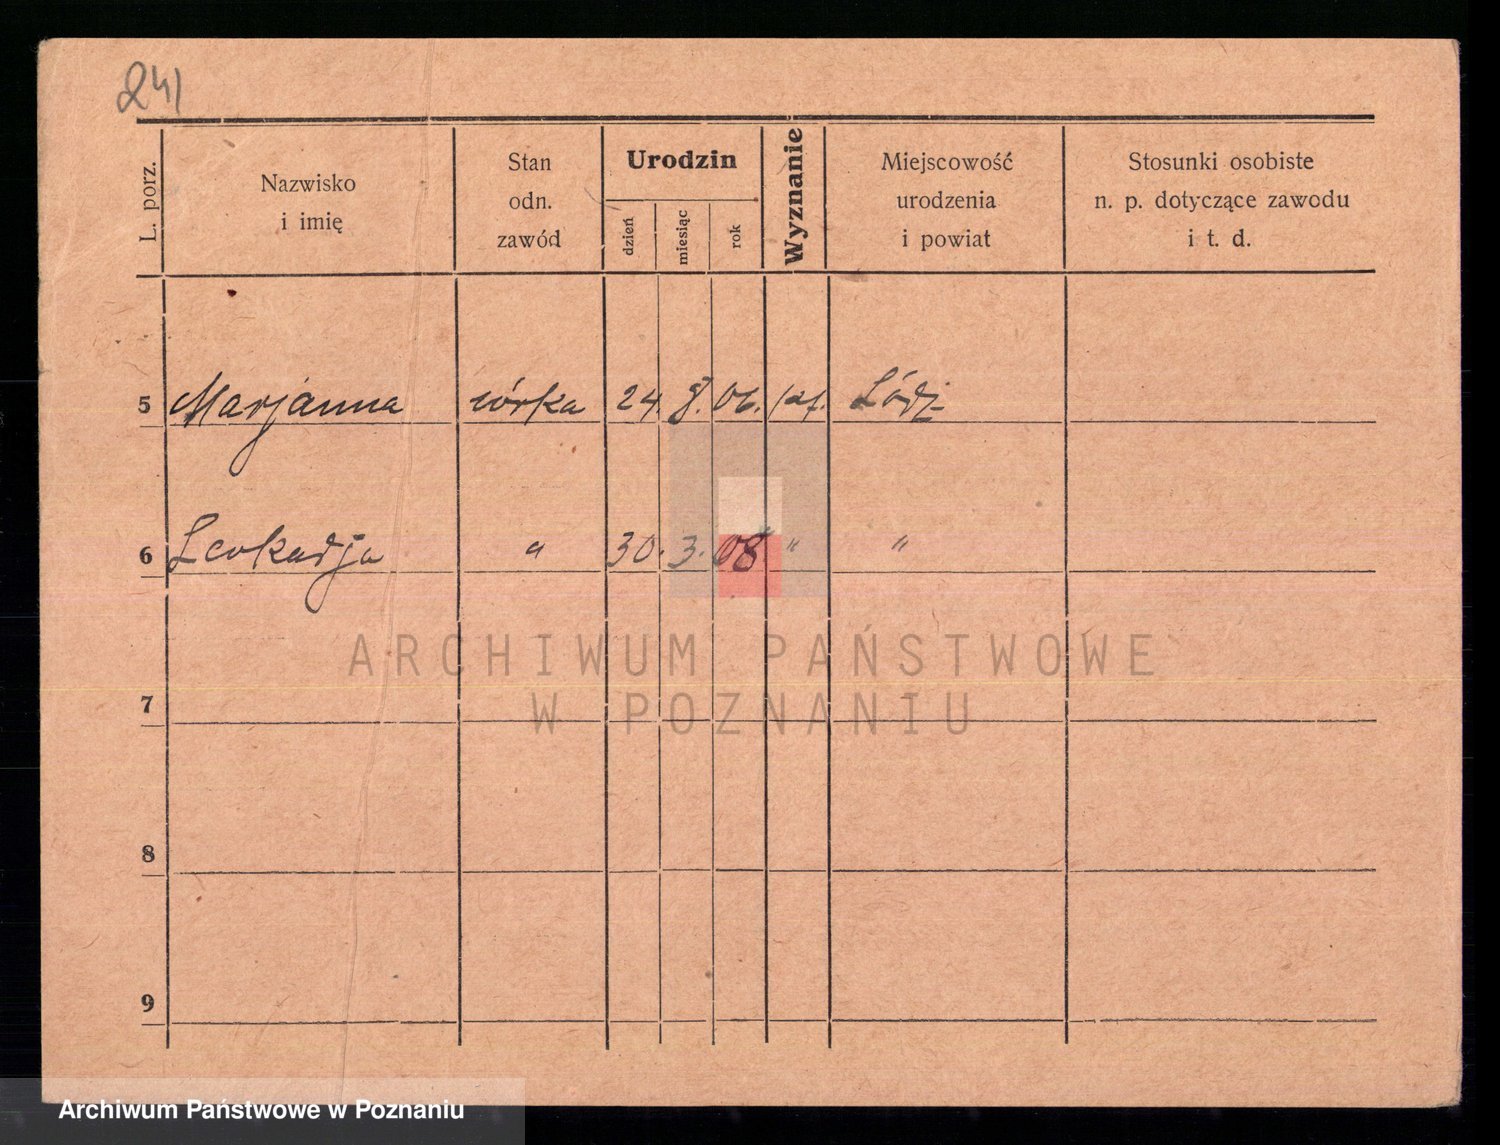 241
L. porz.
Nazwisko
i imię
Stan
odn.
zawód
Urodzin
dzień
miesiąc
rok
Wyznanie
Miejscowość
urodzenia
i powiat
Stosunki osobiste
n. p. dotyczące zawodu
i t. d.
5 Marjanna córka 24. 8. 06. kat. Łódź
6 Leokadja " 30. 3. 08. " "
7
8
9
ARCHIWUM PAŃSTWOWE
W POZNANIU
Archiwum Państwowe w Poznaniu